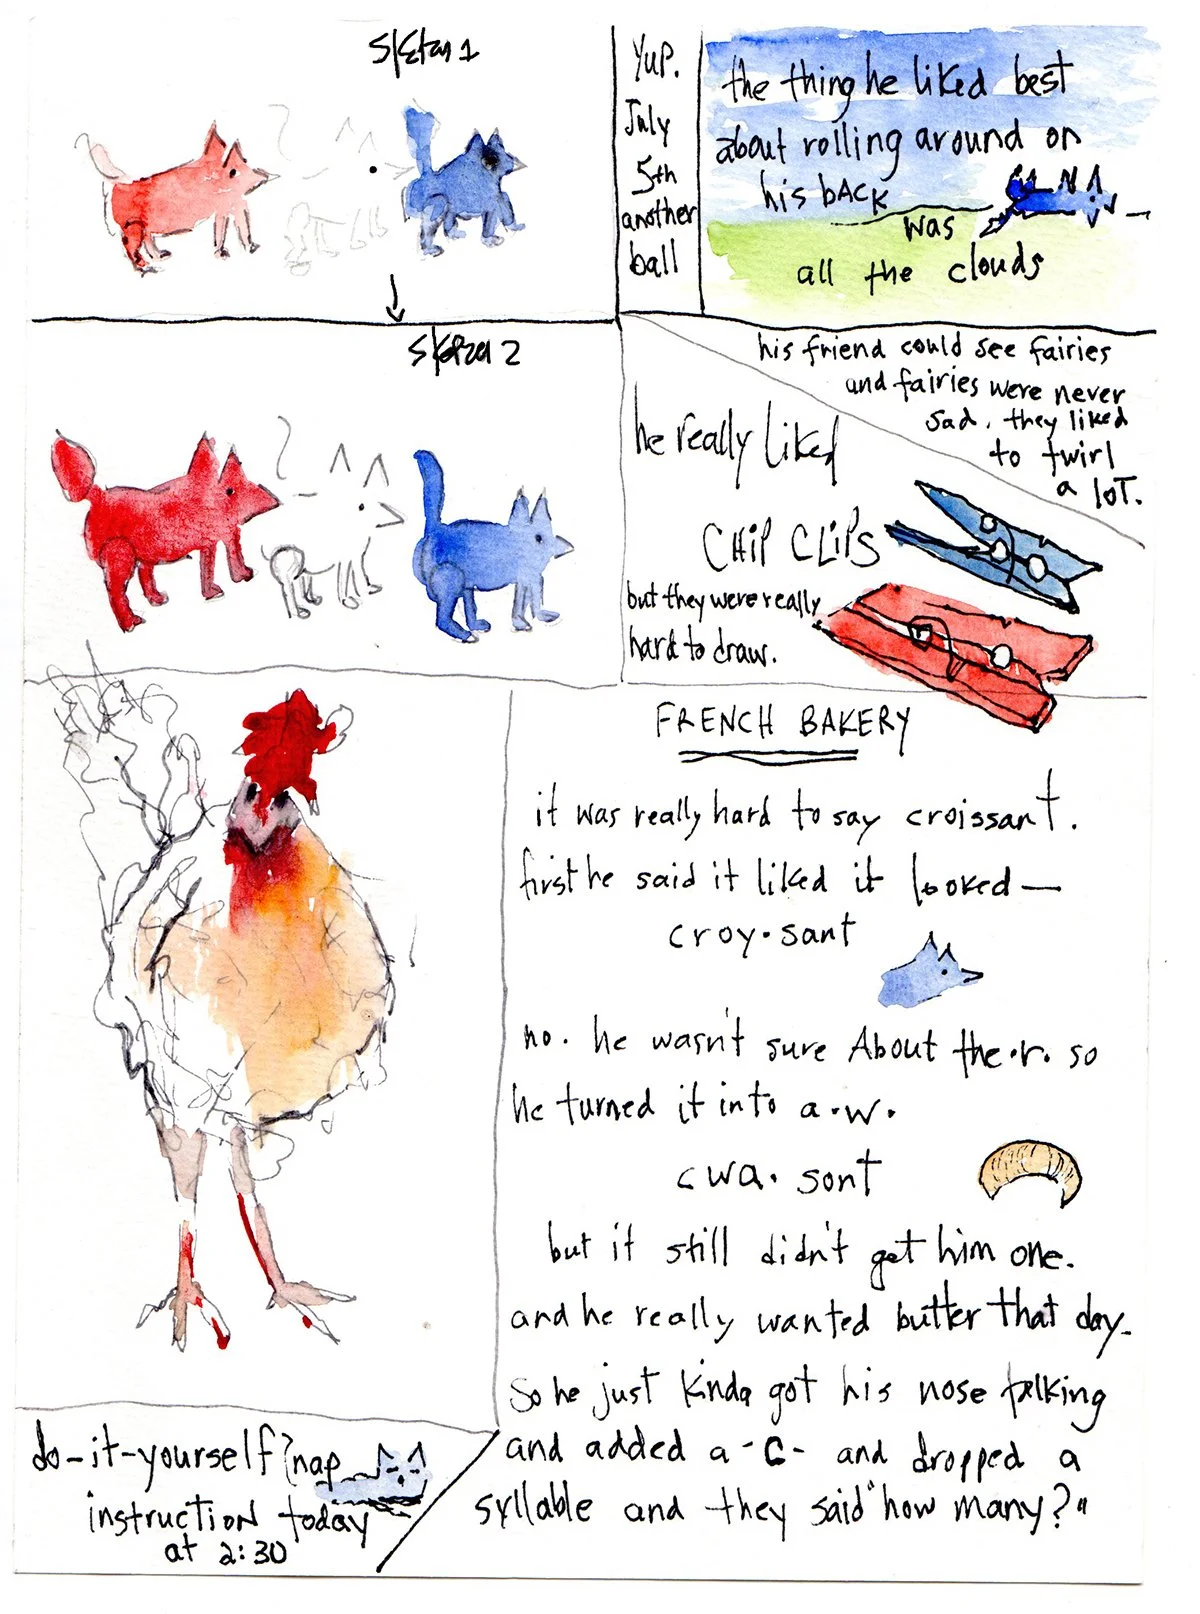 sketch 1
Yup.
July
5th
another
ball
the thing he liked best
about rolling around on
his back
was
all the clouds
sketch 2
his friend could see fairies
and fairies were never
sad. they liked
to twirl
a lot.
he really liked
CHIP CLIPS
but they were really
hard to draw.
FRENCH BAKERY
it was really hard to say croissant.
first he said it liked it looked—
croy·sant
no. he wasn't sure About the·r· so
he turned it into a·w·
cwa·sont
but it still didn't get him one.
and he really wanted butter that day.
So he just kinda got his nose talking
and added a -C- and dropped a
syllable and they said "how many?"
do-it-yourself nap
instruction today
at 2:30